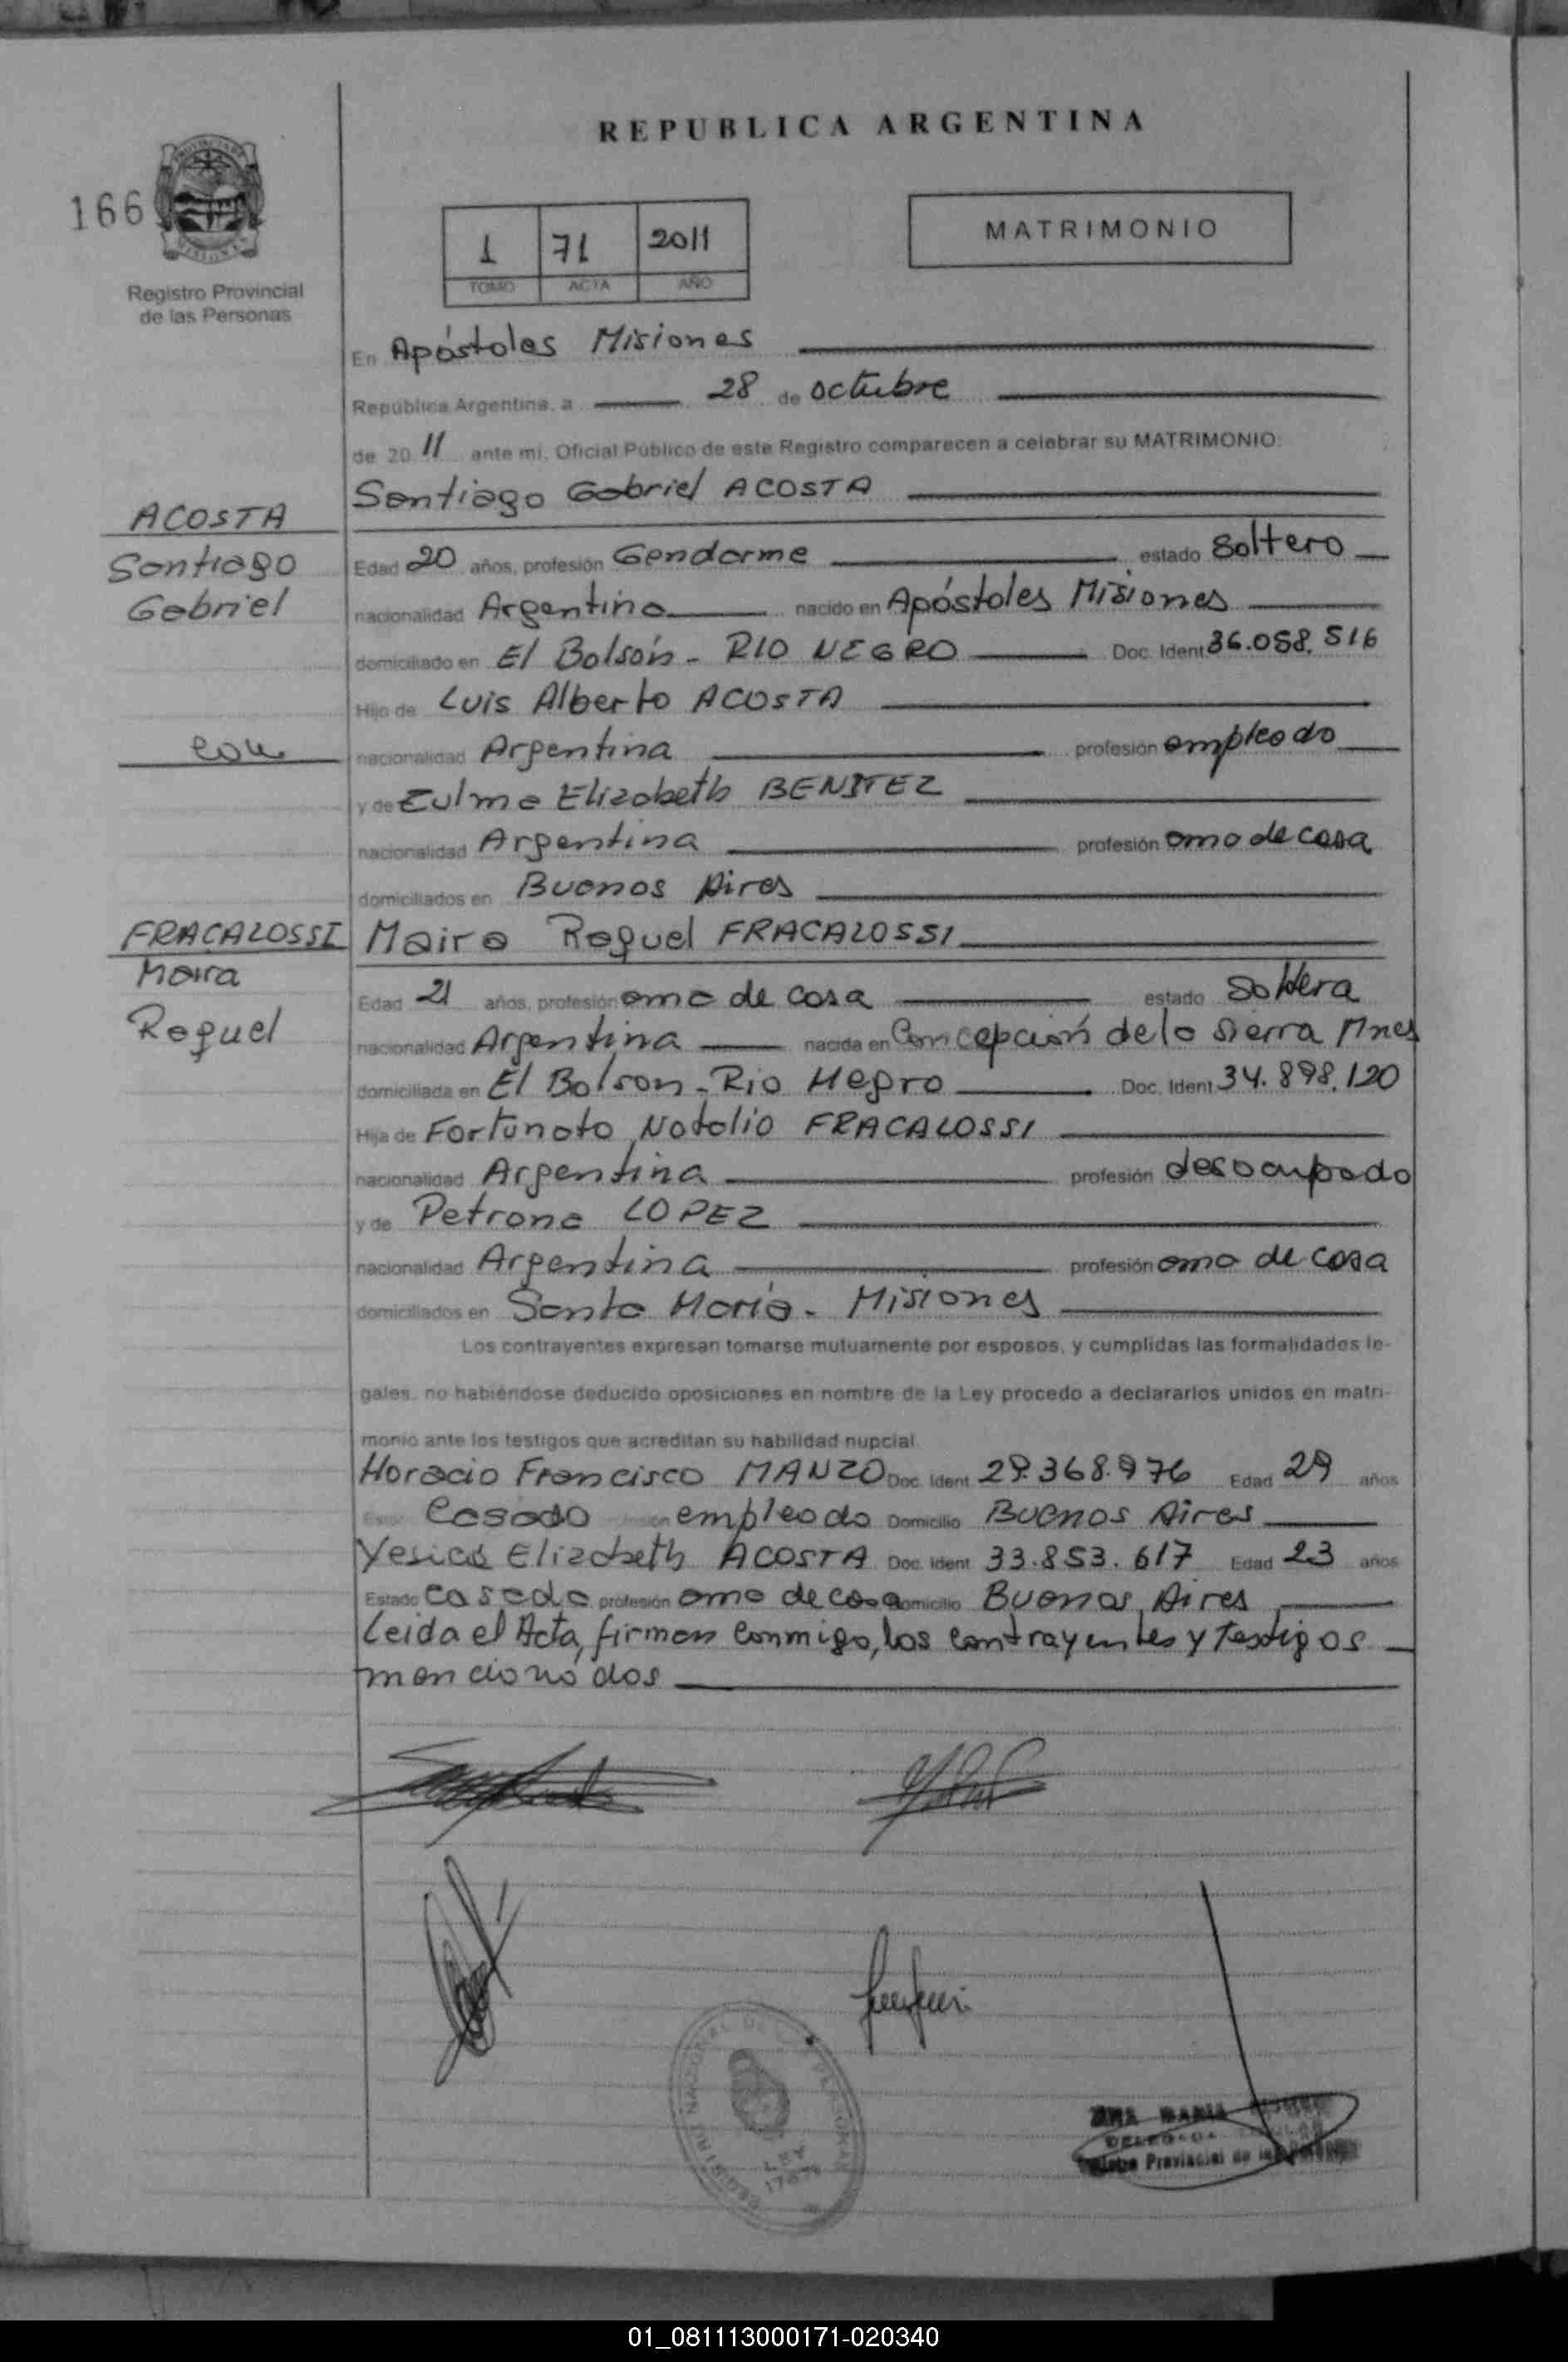 REPUBLICA ARGENTINA
166
Registro Provincial
de las Personas
1 71 2011
TOMO ACTA AÑO
MATRIMONIO
En Apóstoles Misiones
República Argentina, a 28 de octubre
de 20 11 ante mi, Oficial Público de este Registro comparecen a celebrar su MATRIMONIO:
Santiago Gabriel ACOSTA
ACOSTA
Santiago
Gabriel
Edad 20 años, profesión Gendarme estado Soltero
nacionalidad Argentina nacido en Apóstoles Misiones
domiciliado en El Bolsón - RIO NEGRO Doc. Ident 36.058.516
Hijo de Luis Alberto ACOSTA
con
nacionalidad Argentina profesión empleado
y de Zulma Elizabeth BENITEZ
nacionalidad Argentina profesión ama de casa
domiciliados en Buenos Aires
FRACALOSSI
Maira
Raquel
Maira Raquel FRACALOSSI
Edad 21 años, profesión ama de casa estado Soltera
nacionalidad Argentina nacida en Concepción de la Sierra Mnes
domiciliada en El Bolson - Rio Negro Doc. Ident 34.898.120
Hija de Fortunato Natalio FRACALOSSI
nacionalidad Argentina profesión desocupado
y de Petrona LOPEZ
nacionalidad Argentina profesión ama de casa
domiciliados en Santa María - Misiones
Los contrayentes expresan tomarse mutuamente por esposos, y cumplidas las formalidades le-
gales, no habiéndose deducido oposiciones en nombre de la Ley procedo a declararlos unidos en matri-
monio ante los testigos que acreditan su habilidad nupcial.
Horacio Francisco MANZO Doc. Ident 29.368.976 Edad 29 años
Casado empleado Domicilio Buenos Aires
Yesica Elizabeth ACOSTA Doc. Ident 33.853.617 Edad 23 años
Estado casada profesión ama de casa domicilio Buenos Aires
Leida el Acta, firman conmigo, los contrayentes y testigos
mencionados
REGISTRO NACIONAL DE LAS PERSONAS
LEY
ANA MARIA
DELEGADA TITULAR
Registro Provincial de las Personas
01_081113000171-020340